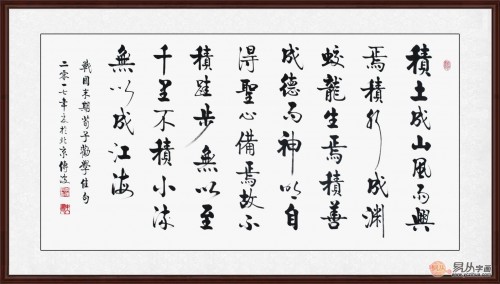 積土成山風雨興
焉積水成淵
蛟龍生焉積善
成德而神明自
得聖心備焉故不
積跬步無以至
千里不積小流
無以成江海
戰國末期荀子勸學佳句
二零一七年於北京
易从字画